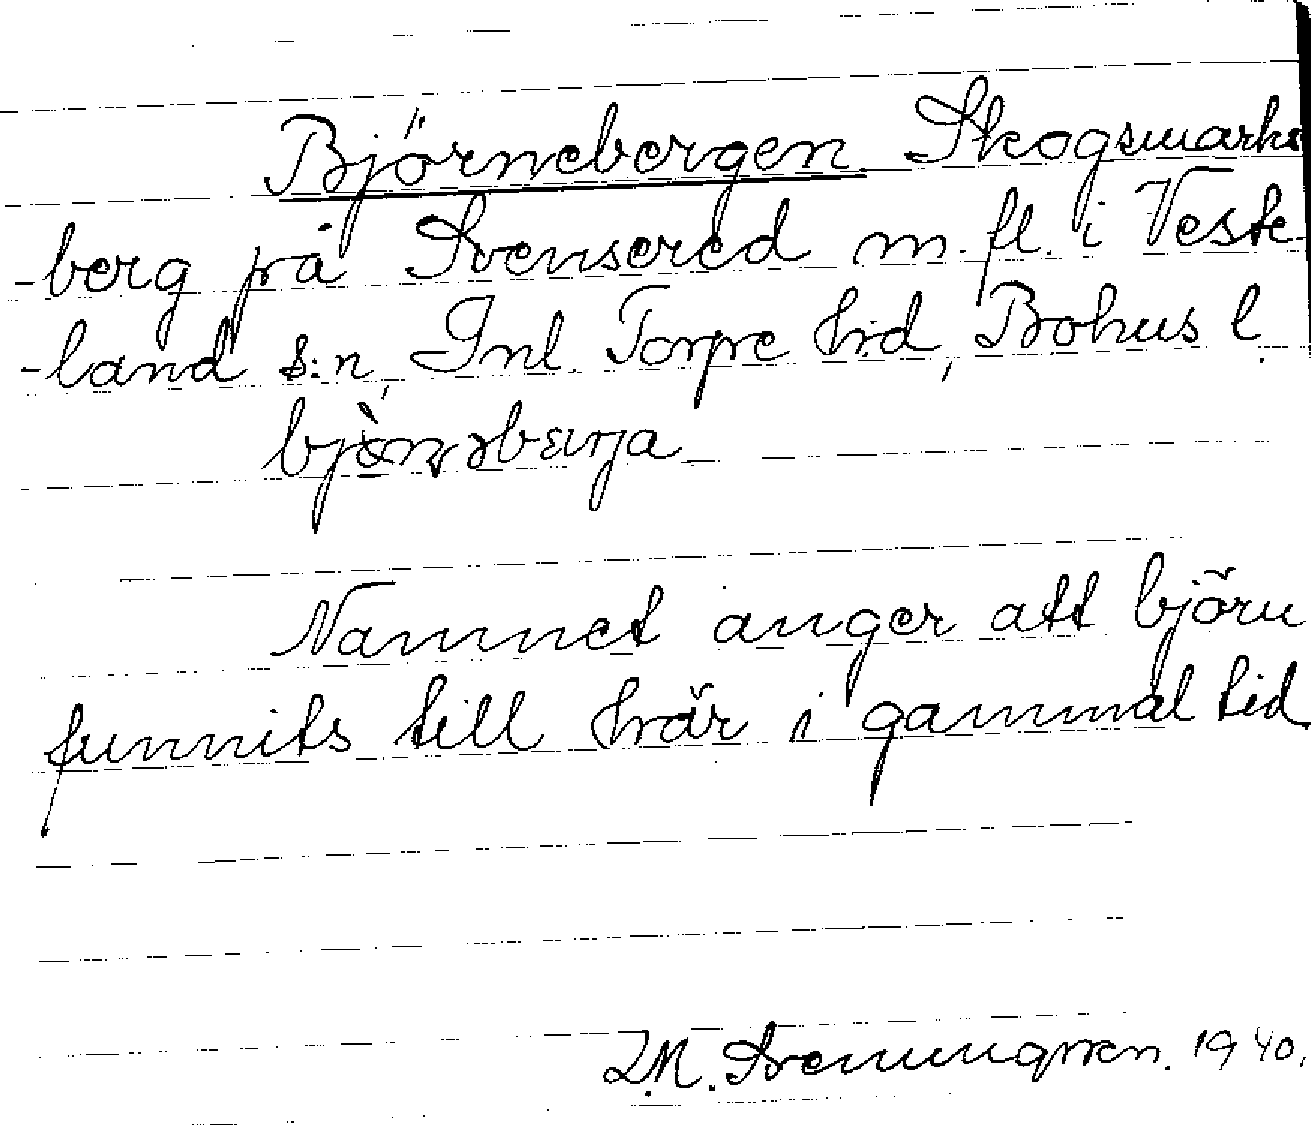 Björnebergen Skogsmarks
-berg på Svensered m. fl. i Veste-
-land s:n, Inl. Torpe hrd, Bohus l.
Namnet anger att björn
funnits till här i gammal tid
J.M. Svenungsson. 1940.